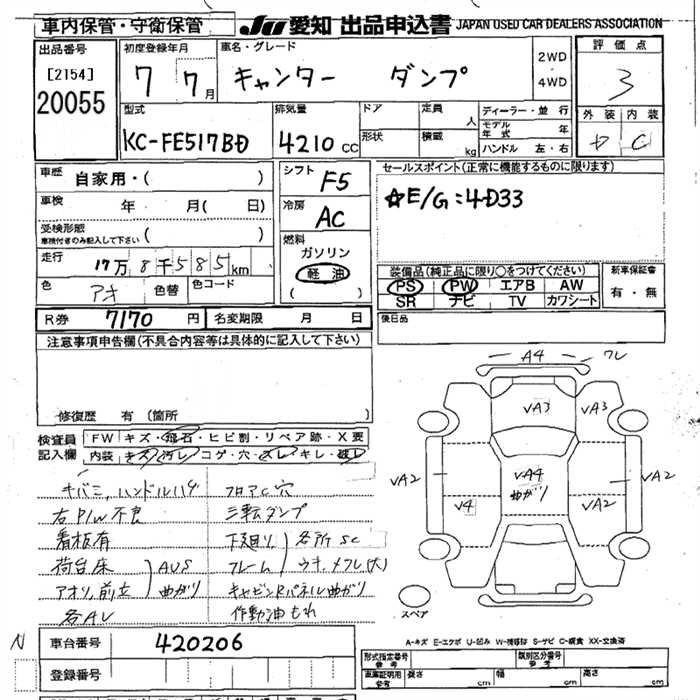 車内保管・守衛保管
JU 愛知 出品申込書 JAPAN USED CAR DEALERS ASSOCIATION
出品番号 初度登録年月 車名・グレード 2WD 評価点
[2154] 7 7月 キャンター ダンプ ・4WD 3
20055
型式 排気量 ドア 定員 人 ディーラー・並行 外装 内装
KC-FE517BD 4210 CC 形状 積載 kg モデル年式 年 C
ハンドル 左・右
車歴 自家用・( ) シフト F5 セールスポイント(正常に機能するものに限ります)
☆E/G:4D33
車検 年 月( 日) 冷房 AC
受検形態 車検付きのみ記入して下さい ( )
燃料 ガソリン
走行 17万8千585km 軽油
( )
装備品(純正品に限り○をつけてください) 新車保証書
PS PW エアB AW 有・無
SR ナビ TV カワシート
色 アオ 色替 色コード
R券 7170 円 名変期限 月 日 後日品
注意事項申告欄(不具合内容等は具体的に記入して下さい)
修復歴 有(箇所 )
検査員記入欄 FW キズ・飛石・ヒビ割・リペア跡・X要
内装 キズ・汚レ・コゲ・穴・スレ・キレ・破レ
キバミ,ハンドルハゲ フロアC穴
右P/W不良 三転ダンプ
看板有 下廻り 各所SC
荷台床 AUS フレーム ウキ,メクレ(大)
アオリ,前立 曲がり キャビンRパネル曲がり
各AU 作動油もれ
A4 クレ
VA3 VA3
VA2 VA4 曲がり VA2
V4 VA2
スペア
A-キズ E-エクボ U-凹み W-補修跡 S-サビ C-腐食 XX-交換済
N 車台番号 420206
登録番号
形式指定番号 参考 類別区分番号 参考
車庫証明用 参考 長さ cm 幅 cm 高さ cm